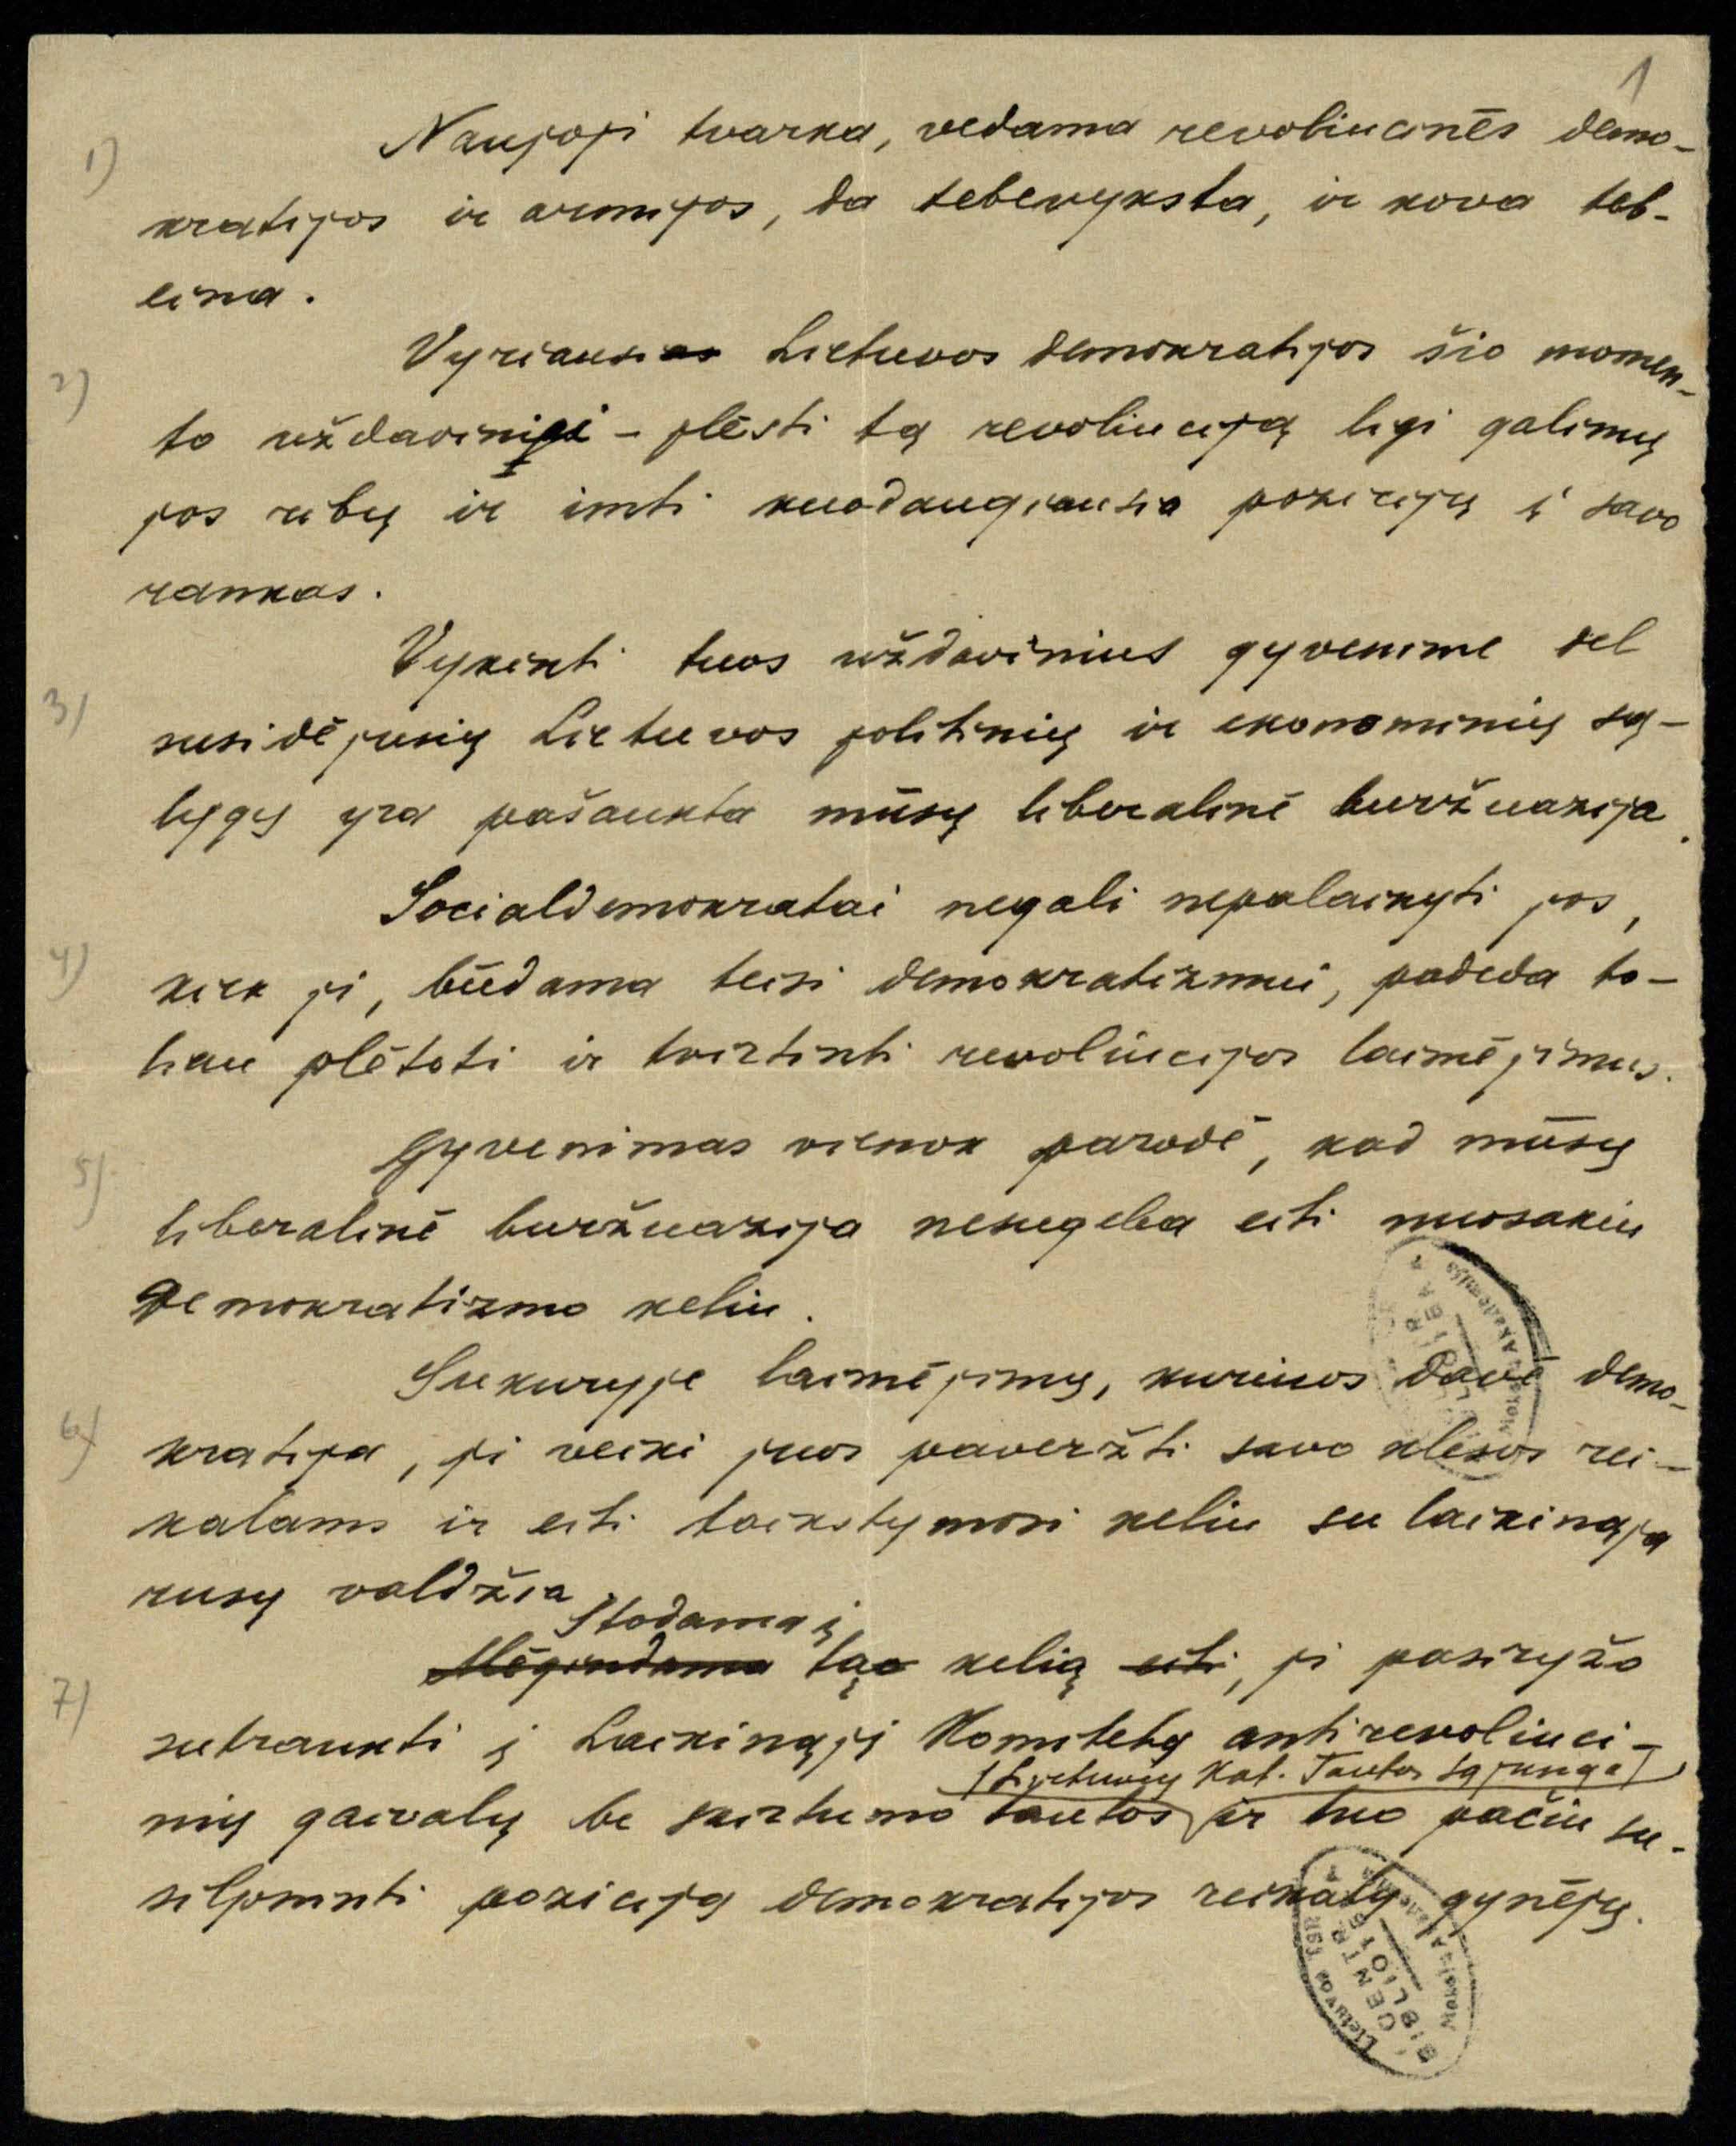 1
1) Naujoji tvarka, vedama revoliucinės demo-
kratijos ir armijos, da tebevyksta, ir kova teb-
eina.
2) Vyriausias Lietuvos demokratijos šio momen-
to uždavinys - plėsti tą revoliuciją ligi galimų
jos ribų ir imti kuodaugiausia pozicijų į savo
rankas.
3) Vykinti tuos uždavinius gyvenime del
susidėjusių Lietuvos politinių ir ekonominių są-
lygų yra pašaukta mūsų liberalinė buržuazija.
4) Socialdemokratai negali nepalaikyti jos,
kiek ji, būdama teisi demokratizmui, padeda to-
liau plėtoti ir tvirtinti revoliucijos laimėjimus.
5) Gyvenimas vienok parodė, kad mūsų
liberalinė buržuazija nesugeba eiti nuosakiu
demokratizmo keliu.
6) Susikurus laimėjimų, kuriuos davė demo-
kratija, ji veiki juos paveržti savo klesos rei-
kalams ir eiti taikstymosi keliu su laikinąja
rusų valdžia
Stodama į
7) Mėgindama tąo kelią eiti, ji pasiryžo
sutraukti į Laikinąjį Komitetą antirevoliuci-
/Lietuvių Kat. Tautos Sąjunga/
nių gaivalų be skirtumo tautos ir tuo pačiu su-
silpninti poziciją demokratijos reikalų gynėjų.
Lietuvos TSR
Mokslų Akademija
CENTR.
BIBLIOTEKA